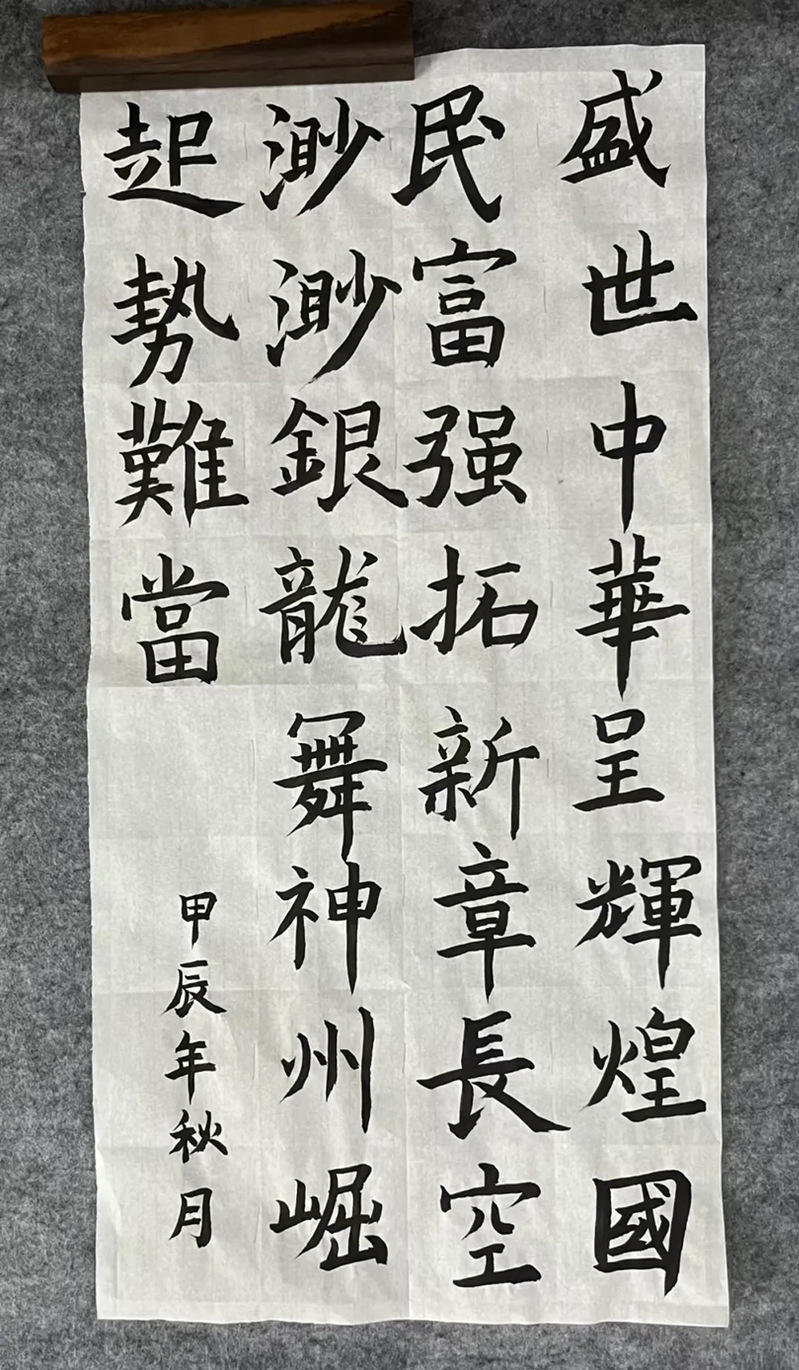 盛世中華呈輝煌國
民富强拓新章長空
渺渺銀龍舞神州崛
起勢難當
甲辰年秋月